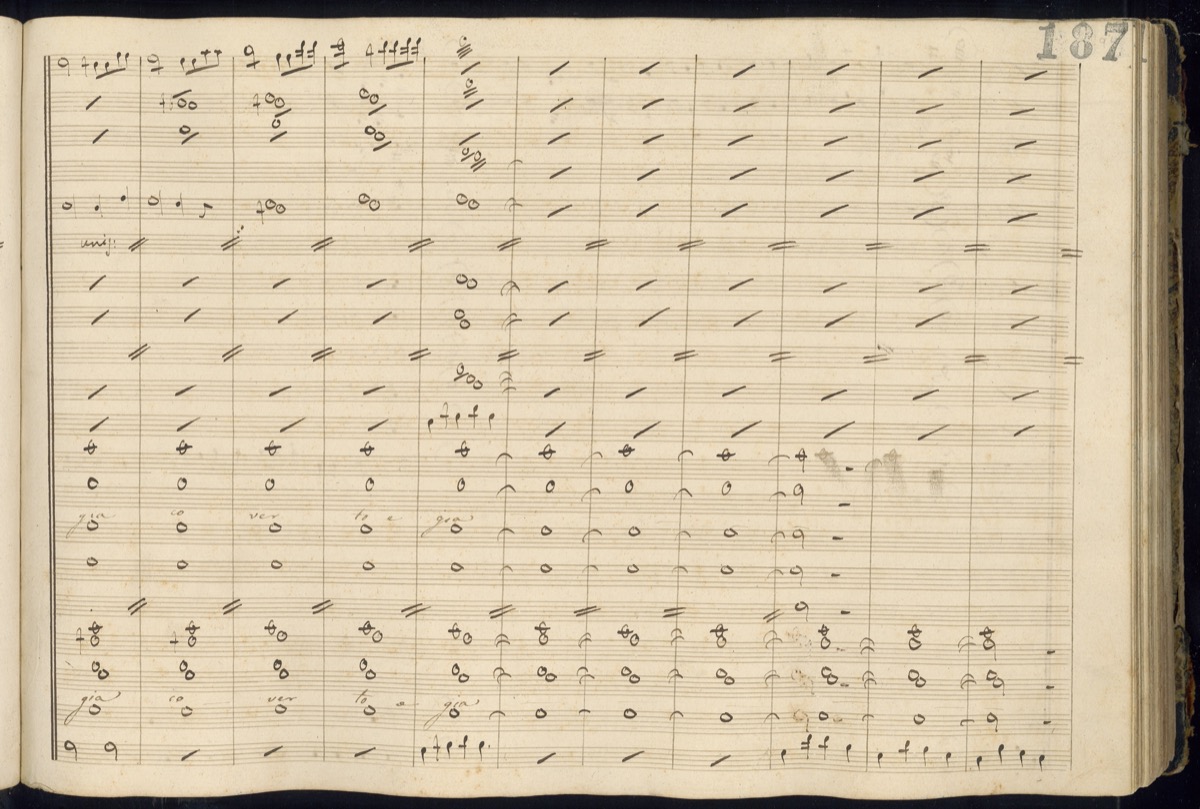 187
unis:
gia co ver to e gia
gia co ver to e gia